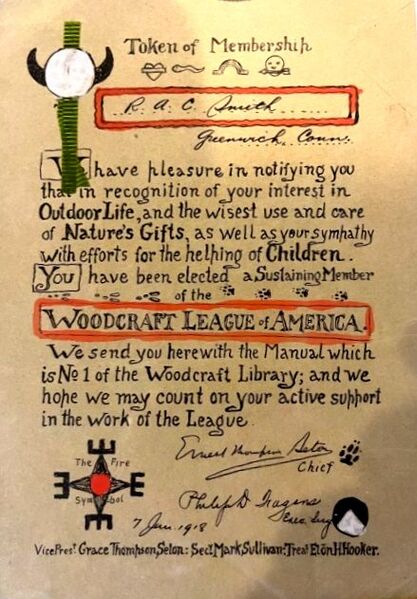 Token of Membership
R. A. C. Smith
Greenwich, Conn.
We have pleasure in notifying you
that in recognition of your interest in
Outdoor Life, and the wisest use and care
of Nature's Gifts, as well as your sympathy
with efforts for the helping of Children.
You have been elected a Sustaining Member
of the
WOODCRAFT LEAGUE of AMERICA.
We send you herewith the Manual which
is No 1 of the Woodcraft Library; and we
hope we may count on your active support
in the work of the League.
Ernest Thompson Seton
Chief
The Fire
Symbol
Philip D. Fagans
Exec. Secy
7 Jan. 1918
Vice Prest. Grace Thompson, Seton: Secy. Mark, Sullivan: Treas. Elon H. Hooker.